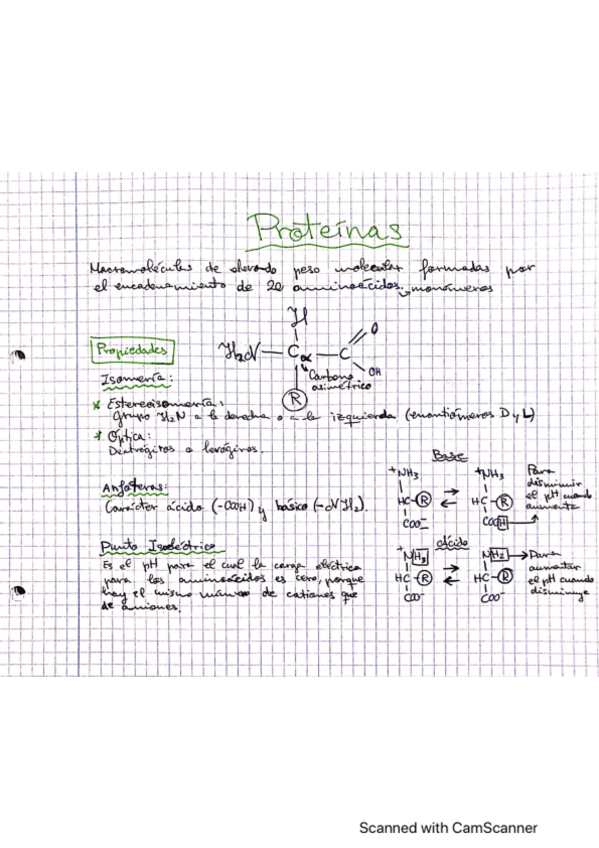 Proteínas
Macromoléculas de elevado peso molecular formadas por
el encadenamiento de 20 aminoácidos. → monómeros
H
O
Propiedades
H₂N — Cα — C
OH
Carbono
asimétrico
R
Isomería:
* Estereoisomería:
Grupo H₂N a la derecha o a la izquierda (enantiómeros D y L)
* Óptica:
Dextrógiros o levógiros.
Anfóteros:
Carácter ácido (-COOH) y básico (-NH₂).
Base
⁺NH₃ ⁺NH₃
HC-R ⇌ HC-R
COO⁻ COOH
Para
disminuir
el pH cuando
aumenta
Punto Isoeléctrico
Es el pH para el cual la carga eléctrica
para los aminoácidos es cero, porque
hay el mismo número de cationes que
de aniones.
Ácido
⁺NH₃ NH₂
HC-R ⇌ HC-R
COO⁻ COO⁻
Para
aumentar
el pH cuando
disminuye
Scanned with CamScanner